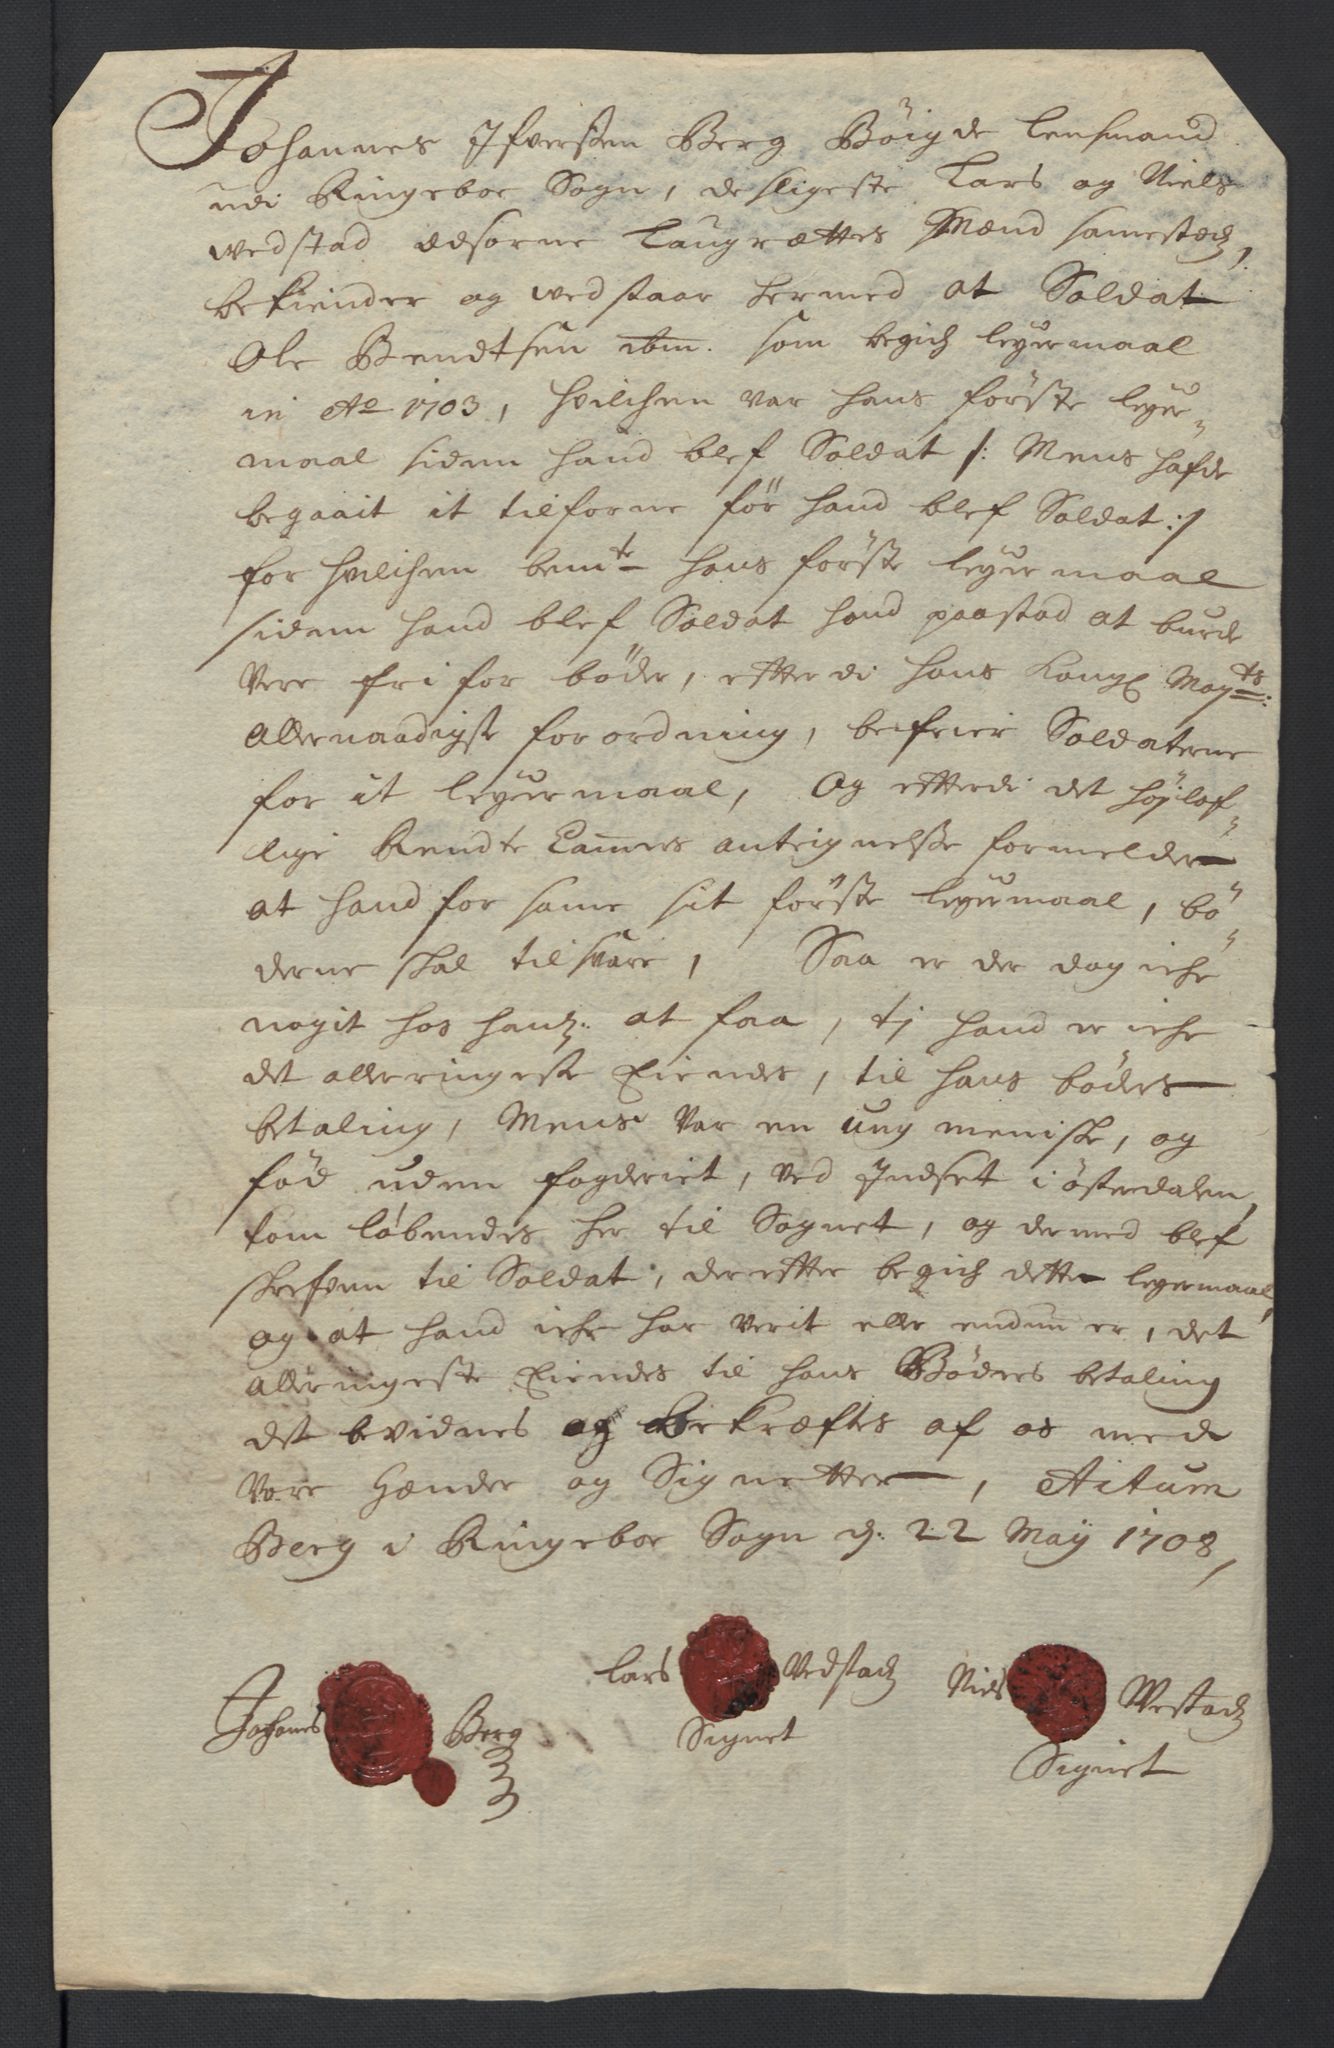 Johannes Ifversen Berg Böigde Lensmand
udi Ringeboe Sogn, desligeste Lars og Niels
Wedstad Edsorne Laugrættes Mænd samested,
bekiender og wedstaar hermed at Soldat
Ole Bendtsen ibm. som begich leyermaal
in Ao 1703, hvilchen var hans förste leyer-
maal siden hand blef Soldat /: Mens hafde
begaait it tilforne för hand blef Soldat :/
for hvilchen bemte hans förste leyermaal
siden hand blef Soldat hand paastod at burde
Vere fri for böder, efterdi hans Kongl Mayts:
Allernaadigste forordning, befrier Soldaterne
for it leyermaal, Og efterdi det höylof-
lige Rendte Camers antegnelse formelder
at hand for same sit förste leyermaal, bö-
derne skal tilsvare, Saa er der dog iche
nogit hos hans. at faa, tj hand er iche
det alleringeste Eiendes, til hans böders
betaling, Mens Var en ung meniske, og
föd uden fogderiet, ved Indset i österdalen,
kom löbendes her til Sognet, og dermed blef
skrefven til Soldat, derefter begich dette leyermaal,
og at hand iche har verit eller endnu er, det
alleringeste Eiendes til hans Böders betaling
det bevidnes og bekræftes af os med
Vore Hænder og Signetter, Actum
Berg i Ringeboe Sogn d. 22 Maÿ 1708,
Johanes Berg
Lars Vedstad
Signet
Niels Westad
Signet